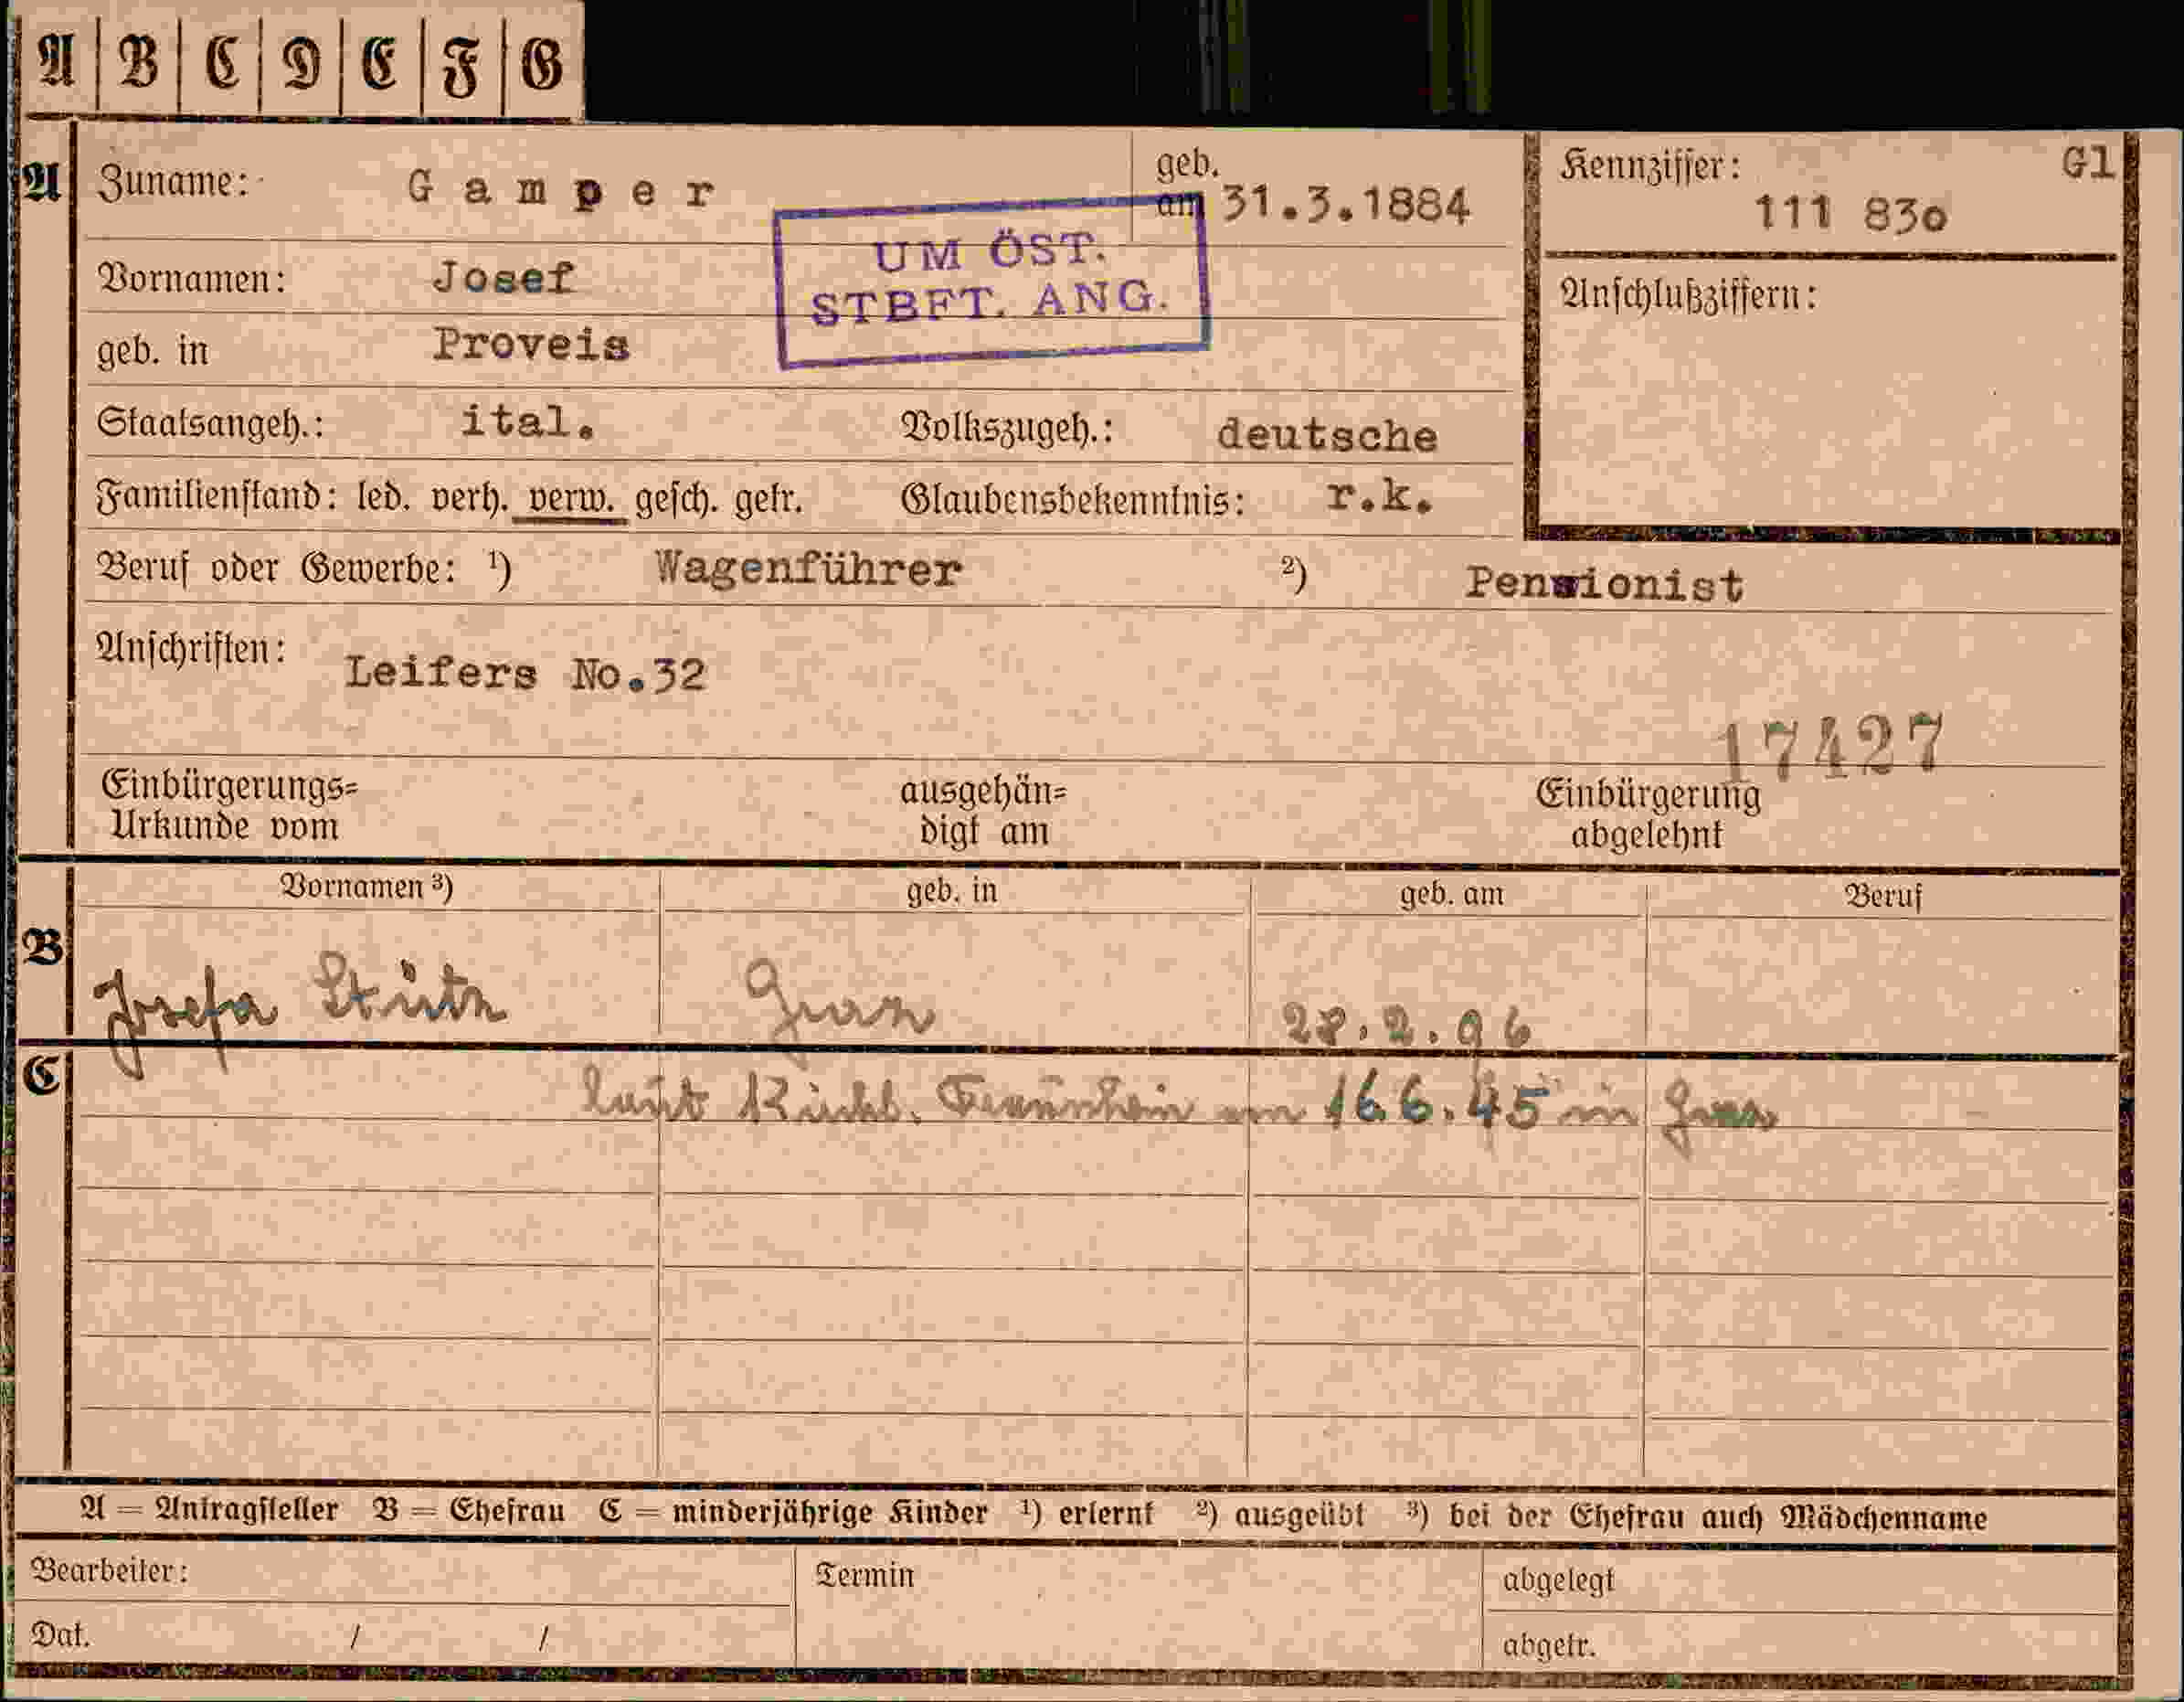 A B C D E F G
A Zuname: Gamper geb. am 31.3.1884 Kennziffer: Gl
111 830
UM ÖST.
STBFT. ANG.
Vornamen: Josef Anschlußziffern:
geb. in Proveis
Staatsangeh.: ital. Volkszugeh.: deutsche
Familienstand: led. verh. verw. gesch. getr. Glaubensbekenntnis: r.k.
Beruf oder Gewerbe: ¹) Wagenführer ²) Pensionist
Anschriften: Leifers No.32
17427
Einbürgerungs= ausgehän= Einbürgerung
Urkunde vom digt am abgelehnt
Vornamen ³) geb. in geb. am Beruf
B Josefa Stütz Graz 28.2.96
C laut am 16.6.45 in Graz
A = Antragsteller B = Ehefrau C = minderjährige Kinder ¹) erlernt ²) ausgeübt ³) bei der Ehefrau auch Mädchenname
Bearbeiter: Termin abgelegt
Dat. / / abgetr.